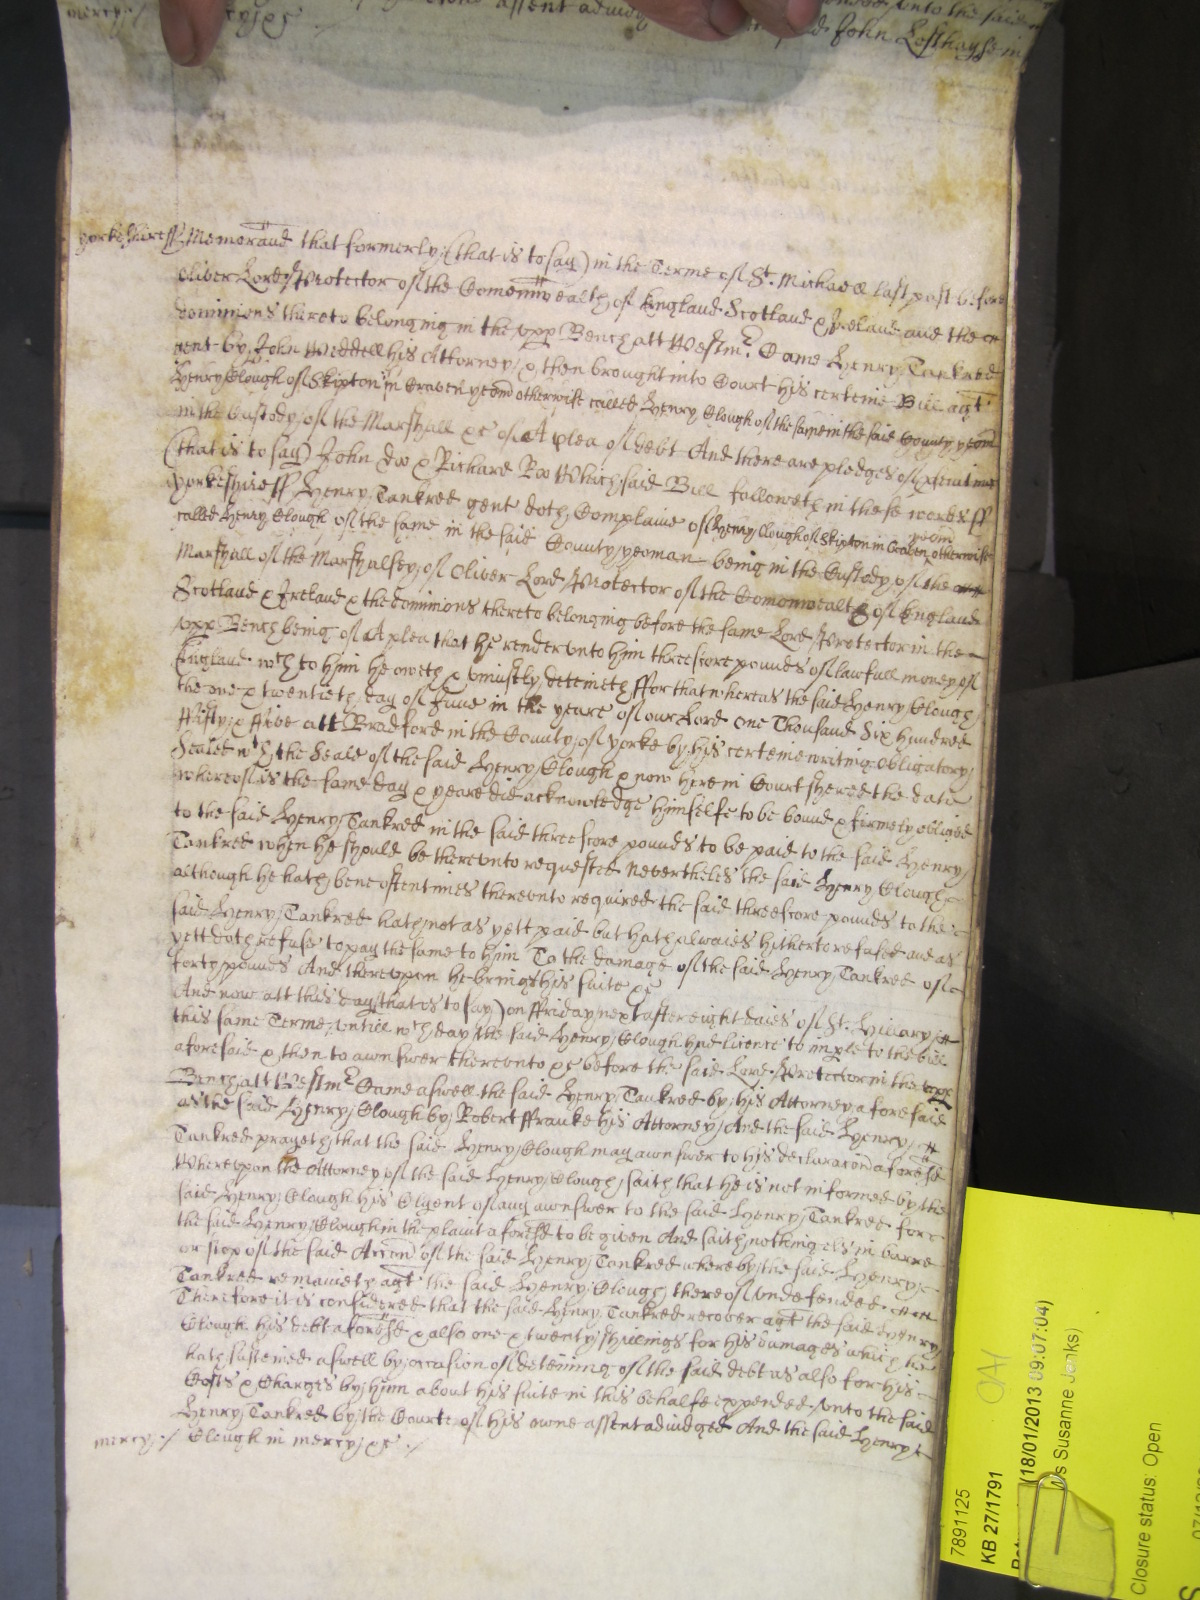 assent adiudg unto the said
mercy &c said John Losthayse in
Yorkeshire ss Memorand that formerly (that is to say) in the Terme of St. Michaell last past before
Oliver Lord Protector of the Comonwealth of England Scotland & Ireland and the
dominions thereto belonging in the upp Bench att Westmr. Came Henry Tankred
gent by John Weddell his Attorney & then brought into Court his certeine Bill agt
Henry Clough of Skipton in Craven yeom otherwise called Henry Clough of the same in the said County yeom
in the Custody of the Marshall &c of A plea of debt And there are pledges of
(that is to say) John Doo & Richard Roo Which said Bill followeth in these words ss
Yorkeshire ss Henry Tankred gent doth Complaine of Henry Clough of Skipton in Craven yeom otherwise
called Henry Clough of the same in the said County yeoman being in the Custody of the
Marshall of the Marshalsey of Oliver Lord Protector of the Comonwealth of England
Scotland & Ireland & the dominions thereto belonging before the same Lord Protector in the
upp Bench being of A plea that he render unto him threescore pounds of lawfull money of
England wch to him he oweth & uniustly deteineth ffor that whereas the said Henry Clough
the one & twentieth day of June in the yeare of our Lord One Thousand Six Hundred
ffifty & ffive att Bradford in the County of Yorke by his certeine writing Obligatory
Sealed wth the Seale of the said Henry Clough & now here in Court shewed the date
whereof is the same day & yeare did acknowledge himselfe to be bound & firmely obliged
to the said Henry Tankred in the said threescore pounds to be paid to the said Henry
Tankred when he should be thereunto requested Nevertheles the said Henry Clough
although he hath bene oftentimes thereunto required the said threescore pounds to the
said Henry Tankred hath not as yett paid but hath alwaies hitherto refused and as
yett doth refuse to pay the same to him To the damage of the said Henry Tankred of
forty pounds And thereupon he brings his suite &c
And now att this day (that is to say) on ffriday next after eight daies of St. Hillary
this same Terme, untill wch day the said Henry Clough had licence to imple to the bill
aforesaid & then to awnswer thereunto &c before the said Lord Protector in the upp
Bench att Westmr Came aswell the said Henry Tankred by his Attorney aforesaid
as the said Henry Clough by Robert ffranke his Attorney And the said Henry
Tankred prayeth that the said Henry Clough may awnswer to his declaracon aforesd
Whereupon the Attorney of the said Henry Clough saith that he is not informed by the
said Henry Clough his Clyent of any awnswer to the said Henry Tankred for
the said Henry Clough in the plaint aforesd to be given And saith nothing els in barre
or stop of the said Accon of the said Henry Tankred whereby the said Henry
Tankred remaineth agt the said Henry Clough thereof undefended
Therefore it is considered that the said Henry Tankred recover agt the said Henry
Clough his debt aforesd & also one & twenty shillings for his damages which he
hath susteined aswell by occasion of deteining of the said debt as also for his
Costs & Charges by him about his suite in this behalfe expended unto the said
Henry Tankred by the Courte of his owne assent adiudged And the said Henry
mercy Clough in mercy &c
7891125
KB 27/1791
(18/01/2013 09:07:04)
Susanne Jenks)
Closure status: Open